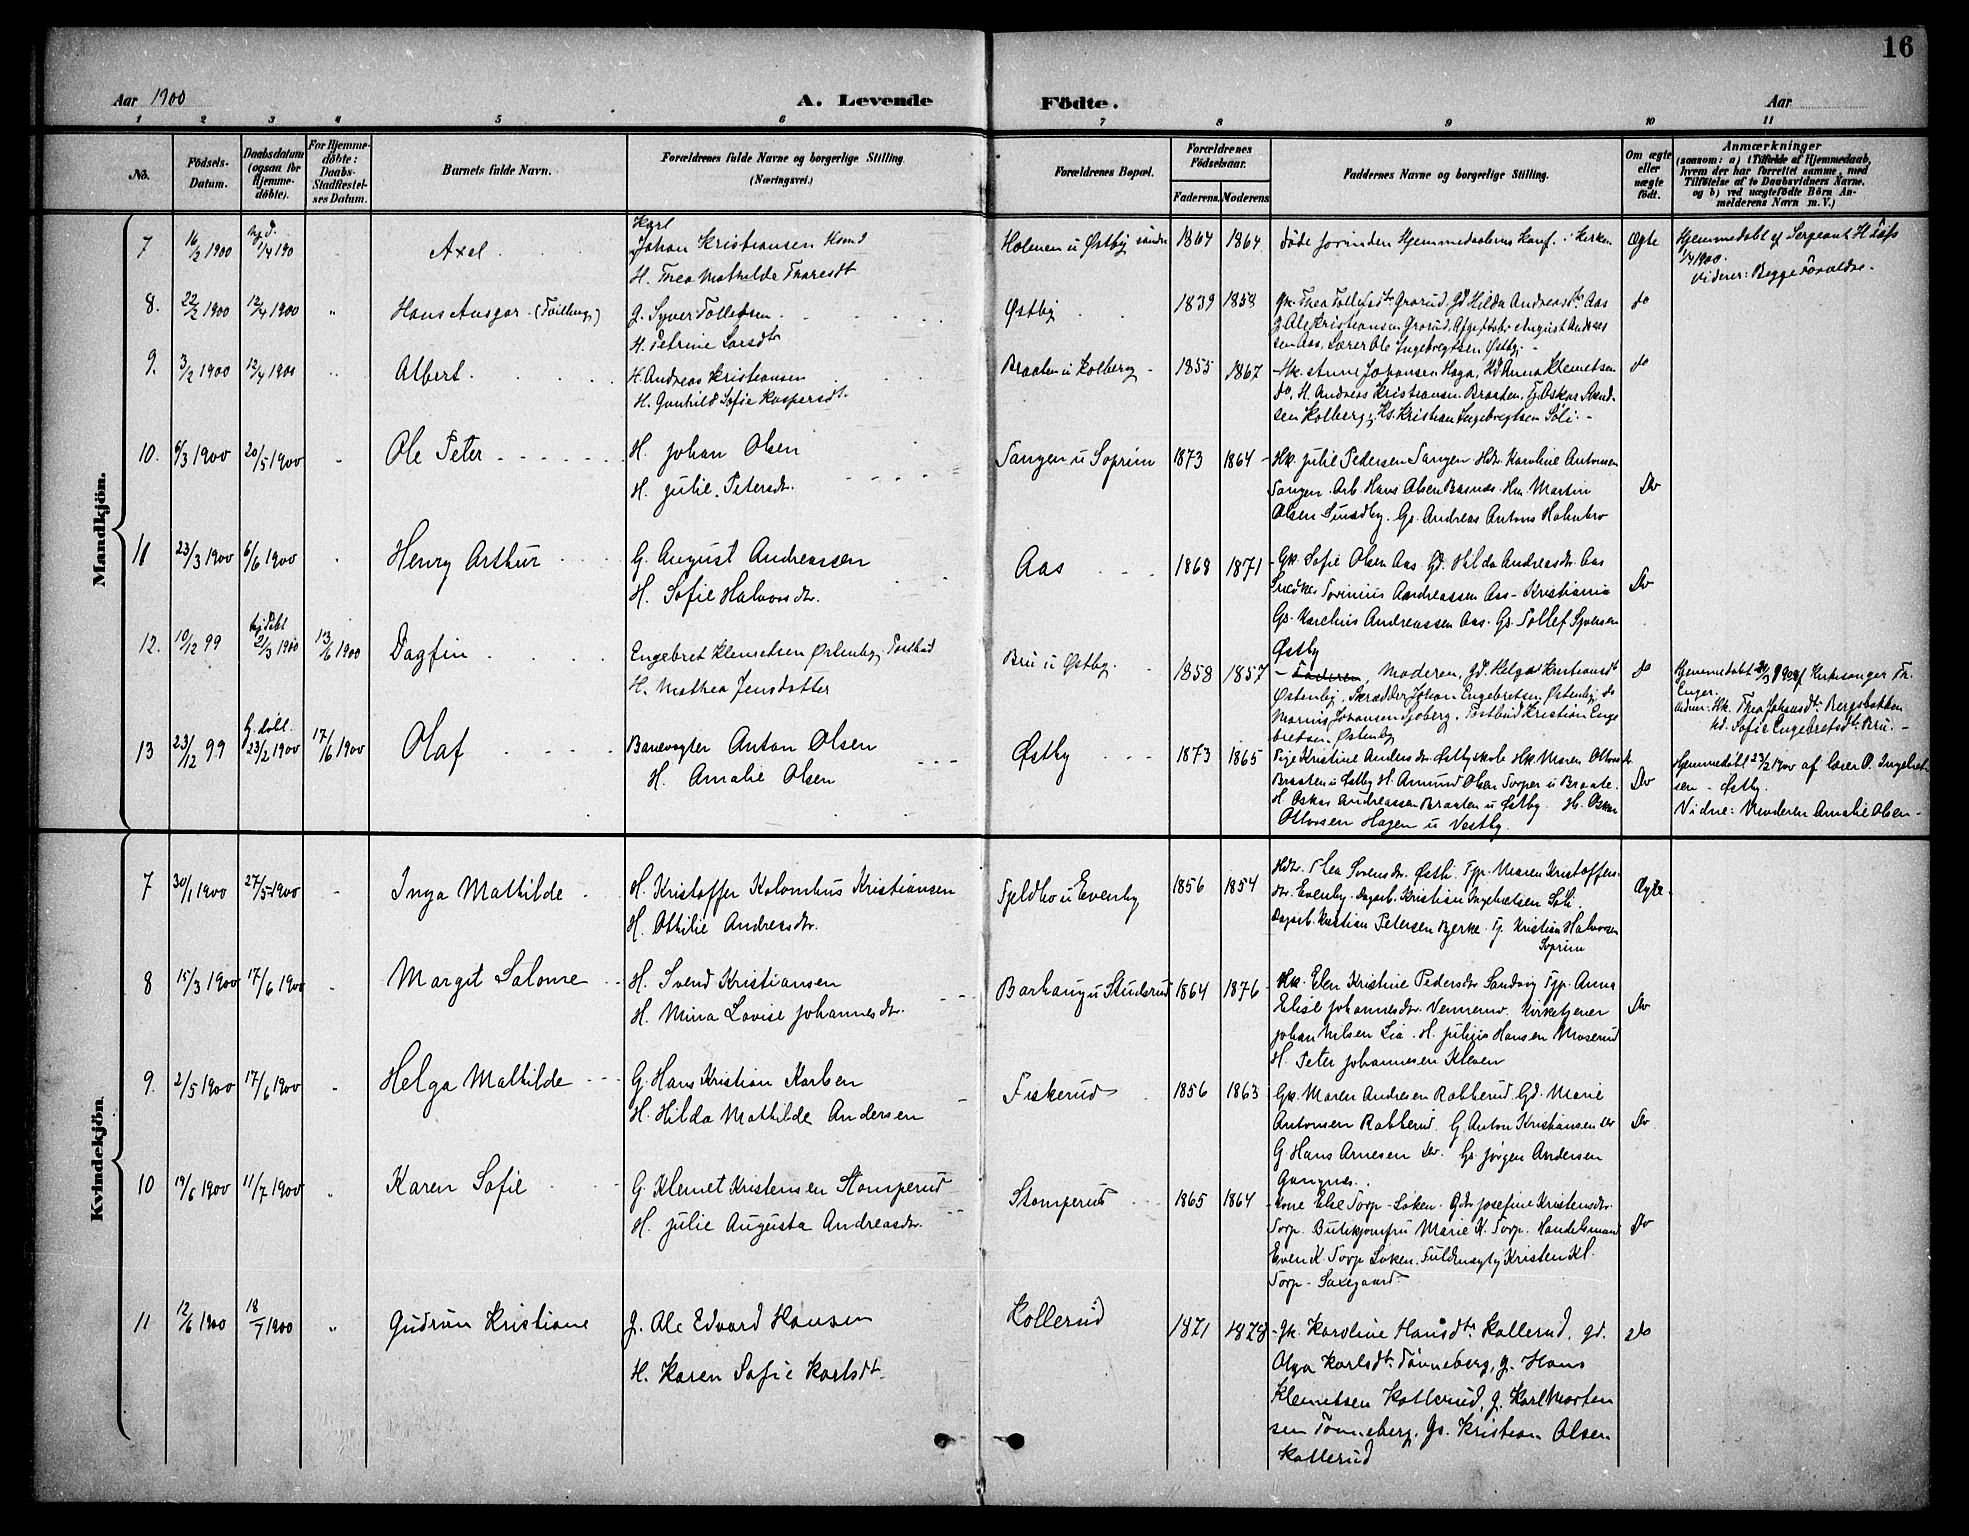 16
Aar 1900
A. Levende
Födte.
Aar
1 2 3 4 5 6 7 8 9 10 11
No.
Födsels-Datum.
Daabsdatum (ogsaa for Hjemme-döbte).
For Hjemme-döbte: Daabs-Stadfæstel-ses Datum.
Barnets fulde Navn.
Forældrenes fulde Navne og borgerlige Stilling. (Næringsvei.)
Forældrenes Bopæl.
Forældrenes Födselsaar.
Faderens. Moderens.
Faddernes Navne og borgerlige Stilling.
Om ægte eller uægte födt.
Anmærkninger
(saasom: a) i Tilfælde af Hjemmedaab, hvem der har forrettet samme, med Tilföielse af to Daabsvidners Navne. og b) ved uægtefödte Börn An-melderens Navn m. V.)
Mandkjön.
7 16/2 1900 1/4 190 Axel
Karl
Johan Kristiansen
H. Thea Mathilde Tharesdt
Holmen u Østby 1864 1864 Døde forinden Hjemmedaabens Kunf. i Kirken Ægte
Hjemmedøbt af Sergeant H
1/4 1900.
Vidner: Begge Forældre.
8. 22/2 1900 12/4 1900 " Hans Ansgar
G. Syver Tollefsen
H. Petrine Larsdtr
Østby 1839 1858 Gk. Thea Tollefsdtr Grorud, Gd Hilda Andreasdtr Aas do
G Ole Kristiansen Grorud, August Andreas
sen Aas, Lærer Ole Ingebregtsen Østby.
9. 3/2 1900 12/4 1900 Albert
H. Andreas Kristiansen
H. Gunhild Sofie Kaspersdt.
Braaten u Kolberg 1855 1867 Hk. Anne Johansen Haga, Hd Anna Klemetsen do
do, H. Andreas Kristiansen Braaten, Oskar
sen Kolberg, Hs. Kristian Ingebregtsen Söli
10. 6/3 1900 20/5 1900 Ole Peter
H. Johan Olsen
H. Julie Petersdtr.
Tangen u Soprim 1873 1864 Hk. Julie Pedersen Tangen. Hdr. Karoline Antonsen
Tangen. Arb. Hans Olsen Basnæs. Hm. Martin Do
Olsen Sundby. Gs. Andreas Antons Holmbro
11 23/3 1900 6/6 1900 Henry Arthur
G. August Andreassen
H. Sofie Halvorsdtr.
Aas 1868 1871 Gk. Sofie Olsen Aas Gd. Hilda Andreasdtr. Aas
Snedker Torinius Andreassen Aas - Kristiania Do
Gs. Karelius Andreassen Aas. Gs. Tollef Syversen
Østby
12. 10/12 99 hj. döbt 21/3 1900 13/6 1900 Dagfin
Engebret Klemetsen Østenby, Postbud
H. Mathea Jensdatter
Bru u Østby. 1858 1857 Faderen, Moderen, Gd. Helga Kristiansdt do
Østenby, Skrædder Johan Engebretsen, Østenby, do
Marius Johansen Sjøberg, Postbud Kristian Enge
bretsen, Østenby
Hjemmedøbt 21/3 1900 af Kirkesanger Th.
Enger.
Vidner: Hk. Thea Johansdtr Bergsbakken
Hd. Sofie Engebretsdtr. Bru.
13 23/12 99 hj. döbt. 23/2 1900 17/6 1900 Olaf
Banevogter Anton Olsen
H. Amalie Olsen
Østby 1873 1865 Pige Kristine Andersdtr Østbyskole Hk. Maren Olsendtr.
Braaten u Østby H. Amund Olsen Torper u Braate Do
H. Oskar Andreassen Braaten u Østby. H. Oskar
Ottersen Hagen u Vestby.
Hjemmedöbt 23/2 1900 af lærer O. Ingebret-
sen - Østby.
Vidne: Moderen Amalie Olsen
Kvindekjön.
7 30/1 1900 27/5 1900 Inga Mathilde
H. Kristoffer Kolombus Kristiansen
H. Othilie Andreasdtr.
Fjeldbo u Evenby 1856 1854 Hdtr. Thea Sorensdr. Østli. Typ. Maren Kristoffers-
dtr. Evenby. Dagarb. Kristian Ingebretsen Söli.
Dagarb. Kristian Petersen Bjerke. Tj. Kristian Halvorsen
Soprim
Ægte
8 15/3 1900 17/6 1900 Margit Salome
H. Svend Kristiansen
H. Mina Lovise Johannesdtr.
Barhaug u Studsrud 1864 1876 Hk. Elen Kristine Pedersdtr Sandvig Typ. Anna
Elise Johannesdtr. Vennemo. Kirketjener Do
Johan Nilsen Lia. H. Julius Hansen Moserud
H. Peter Johannesen Kleven
9. 2/5 1900 17/6 1900 Helga Mathilde
G. Hans Kristian Karlsen
H. Hilda Mathilde Andersen
Fiskerud 1856 1863 Gk. Maren Andresen Rabberud. Gd. Marie
Antonsen Rabberud. G. Anton Kristiansen Do Do
G. Hans Arnesen Do. Gs. Jörgen Andersen
Gangnæs.
10 19/6 1900 11/7 1900 Karen Sofie
G. Klemet Kristensen Stomperud
H. Julie Augusta Andreasdtr.
Stomperud 1865 1864 Kone Else Torp - Löken. Gdr Josefine Kristensdtr.
Torp. Butikjomfru Marie K. Torp. Handelsmand Do
Even K. Torp Löken. Fuldmægtig Kristen Kl.
Torp - Saxegaard
11 12/6 1900 18/7 1900 " Gudrun Kristiane
G. Ole Edvard Hansen
H. Karen Sofie Karlsdt.
Kollerud 1871 1878 Gk. Karoline Hansdtr. Kollerud, gd. do
Olga Karlsdtr. Tönneberg, g. Hans
Klemetsen Kollerud, g. Karl Morten
sen Tönneberg, Gs. Kristian Olsen
Kollerud